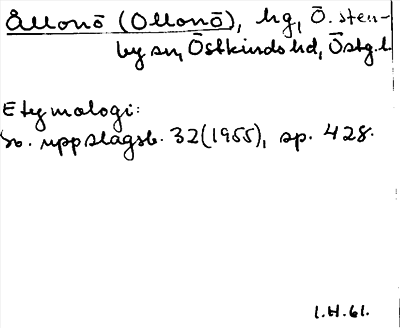 Ållonö (Ollonö), hg, Ö. sten-
by sn, Östkinds hd, Östg.l
Etymologi:
Sv. uppslagsb. 32 (1955), sp. 428.
I.H.61.